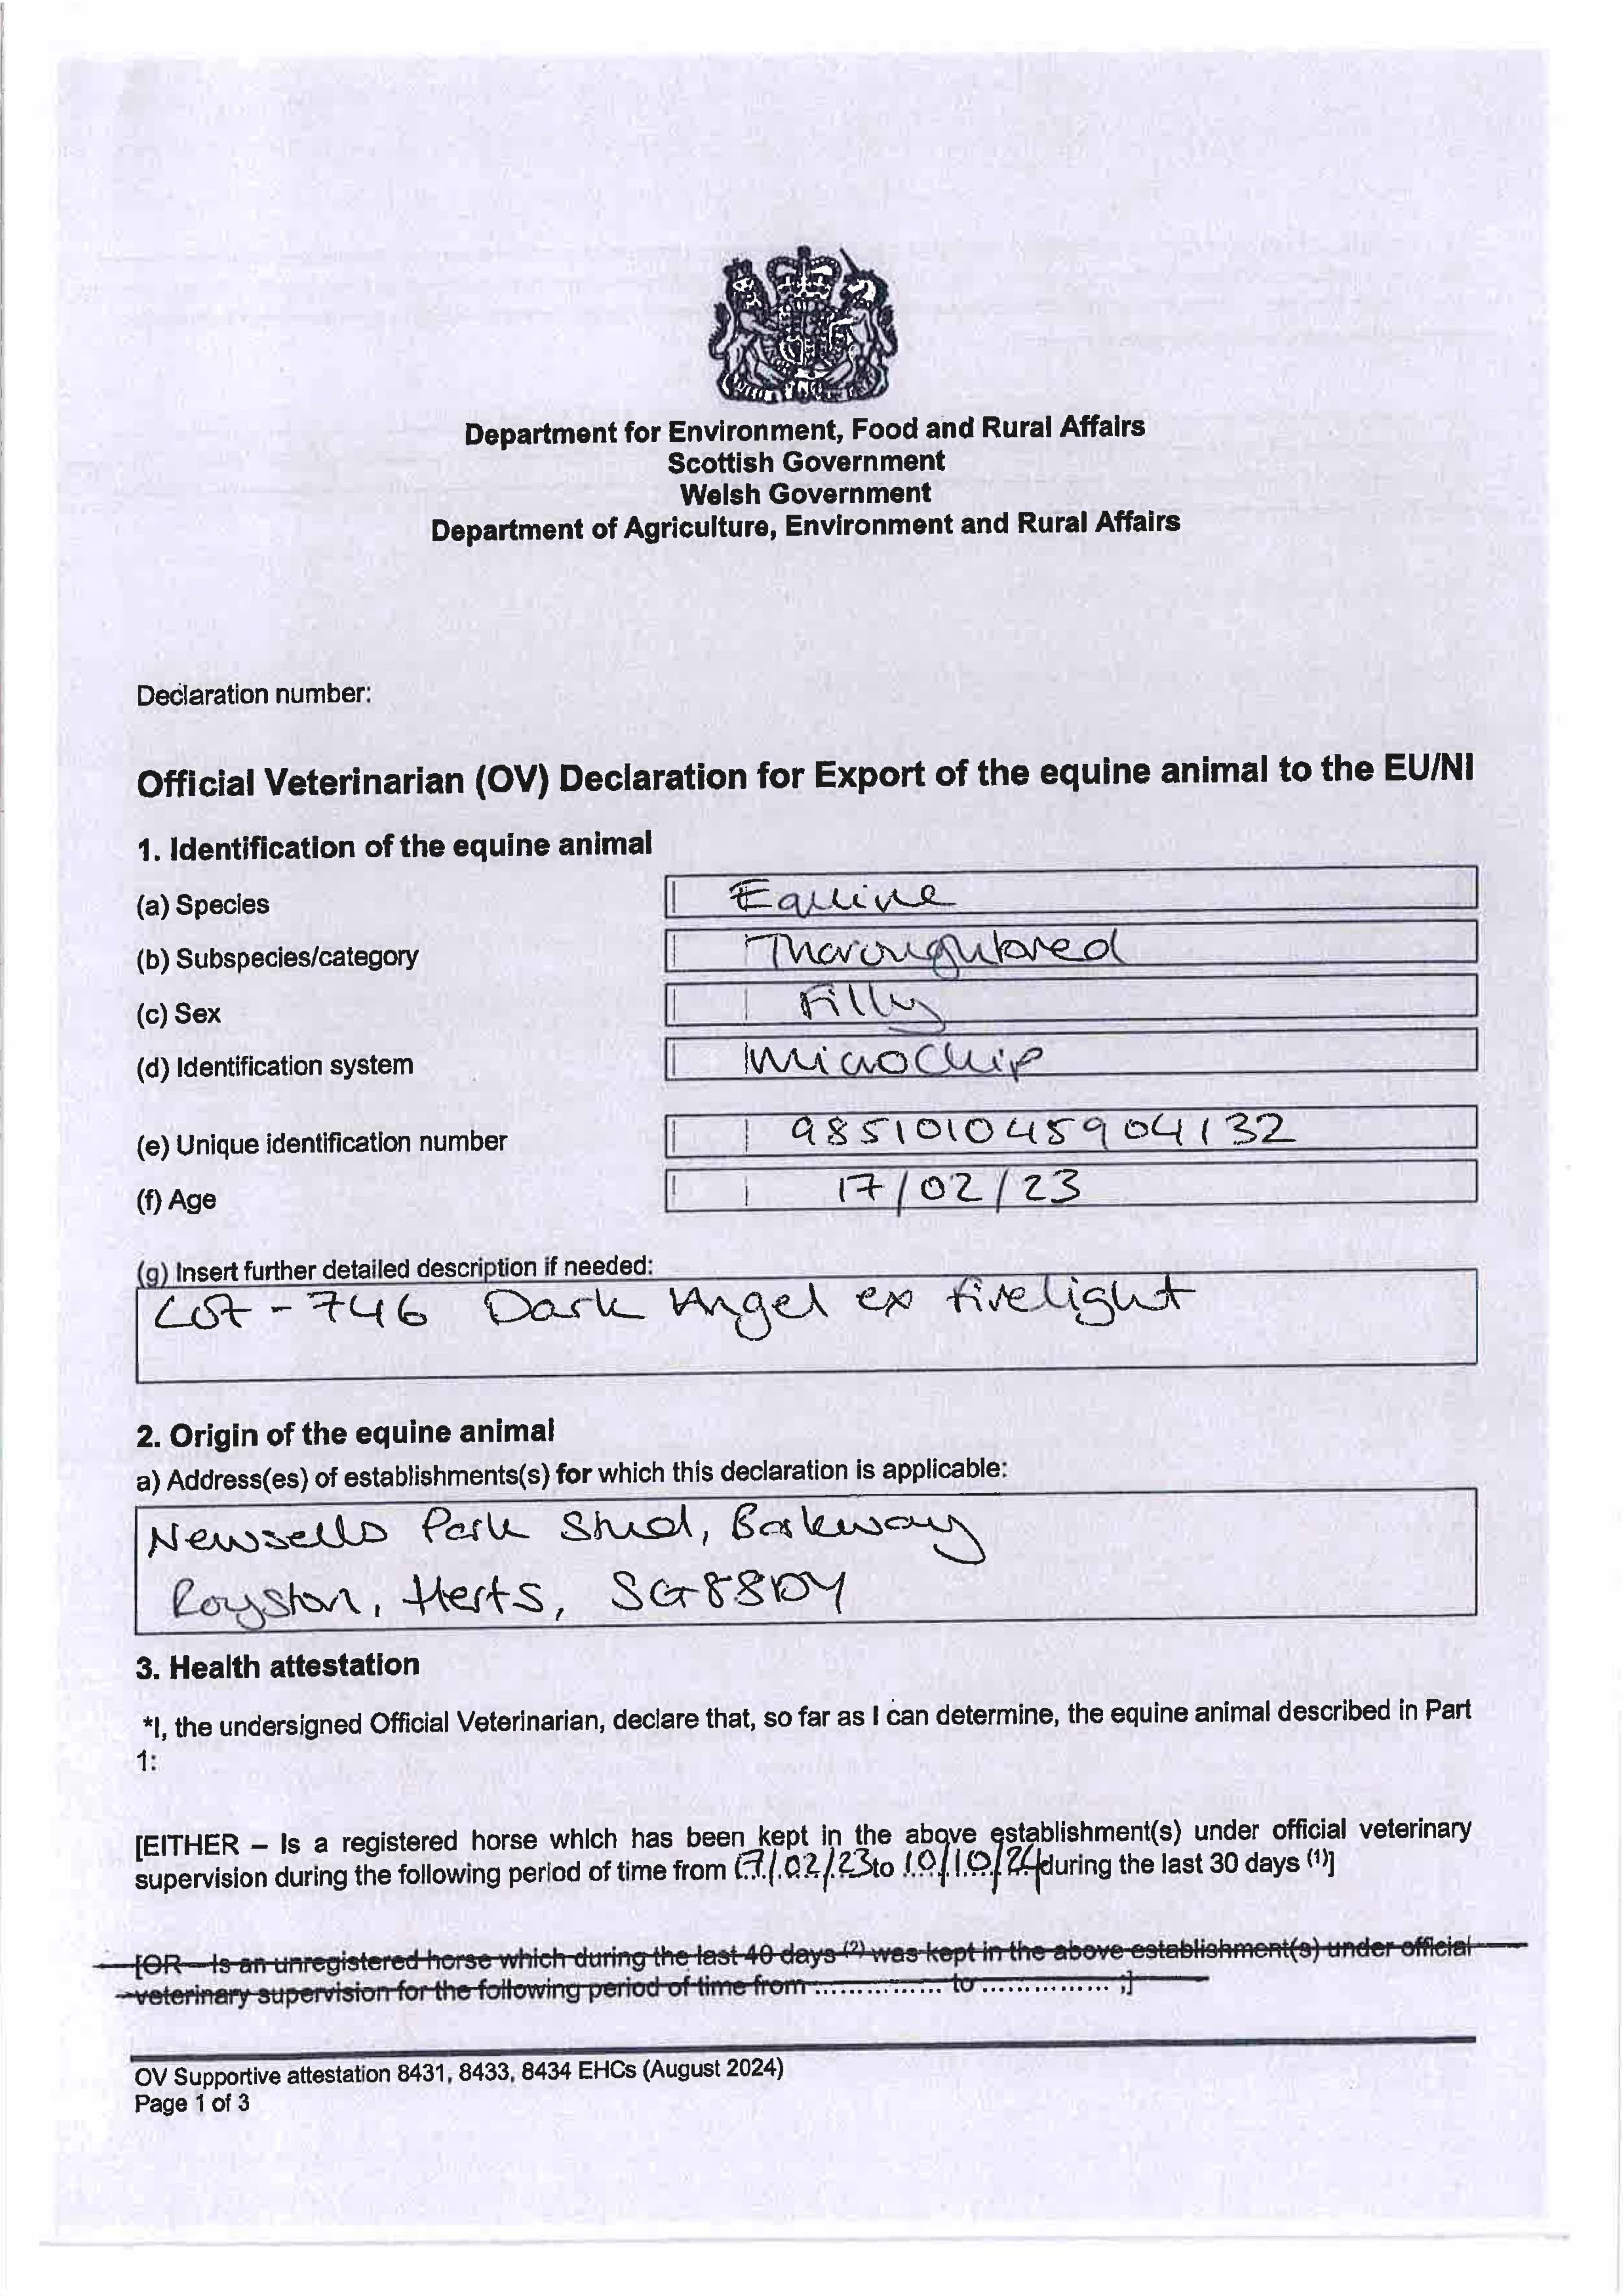 Department for Environment, Food and Rural Affairs
Scottish Government
Welsh Government
Department of Agriculture, Environment and Rural Affairs
Declaration number:
Official Veterinarian (OV) Declaration for Export of the equine animal to the EU/NI
1. Identification of the equine animal
(a) Species Equine
(b) Subspecies/category Thoroughbred
(c) Sex Filly
(d) Identification system Microchip
(e) Unique identification number 985101045904132
(f) Age 17/02/23
(g) Insert further detailed description if needed:
Lot - 746 Dark Angel ex Firelight
2. Origin of the equine animal
a) Address(es) of establishments(s) for which this declaration is applicable:
Newsells Park Stud, Barkway
Royston, Herts, SG88DY
3. Health attestation
*I, the undersigned Official Veterinarian, declare that, so far as I can determine, the equine animal described in Part
1:
[EITHER – Is a registered horse which has been kept in the above establishment(s) under official veterinary
supervision during the following period of time from 17/02/23 to 10/10/24 during the last 30 days (1)]
[OR – Is an unregistered horse which during the last 40 days (2) was kept in the above establishment(s) under official
veterinary supervision for the following period of time from ................ to ................ ;]
OV Supportive attestation 8431, 8433, 8434 EHCs (August 2024)
Page 1 of 3